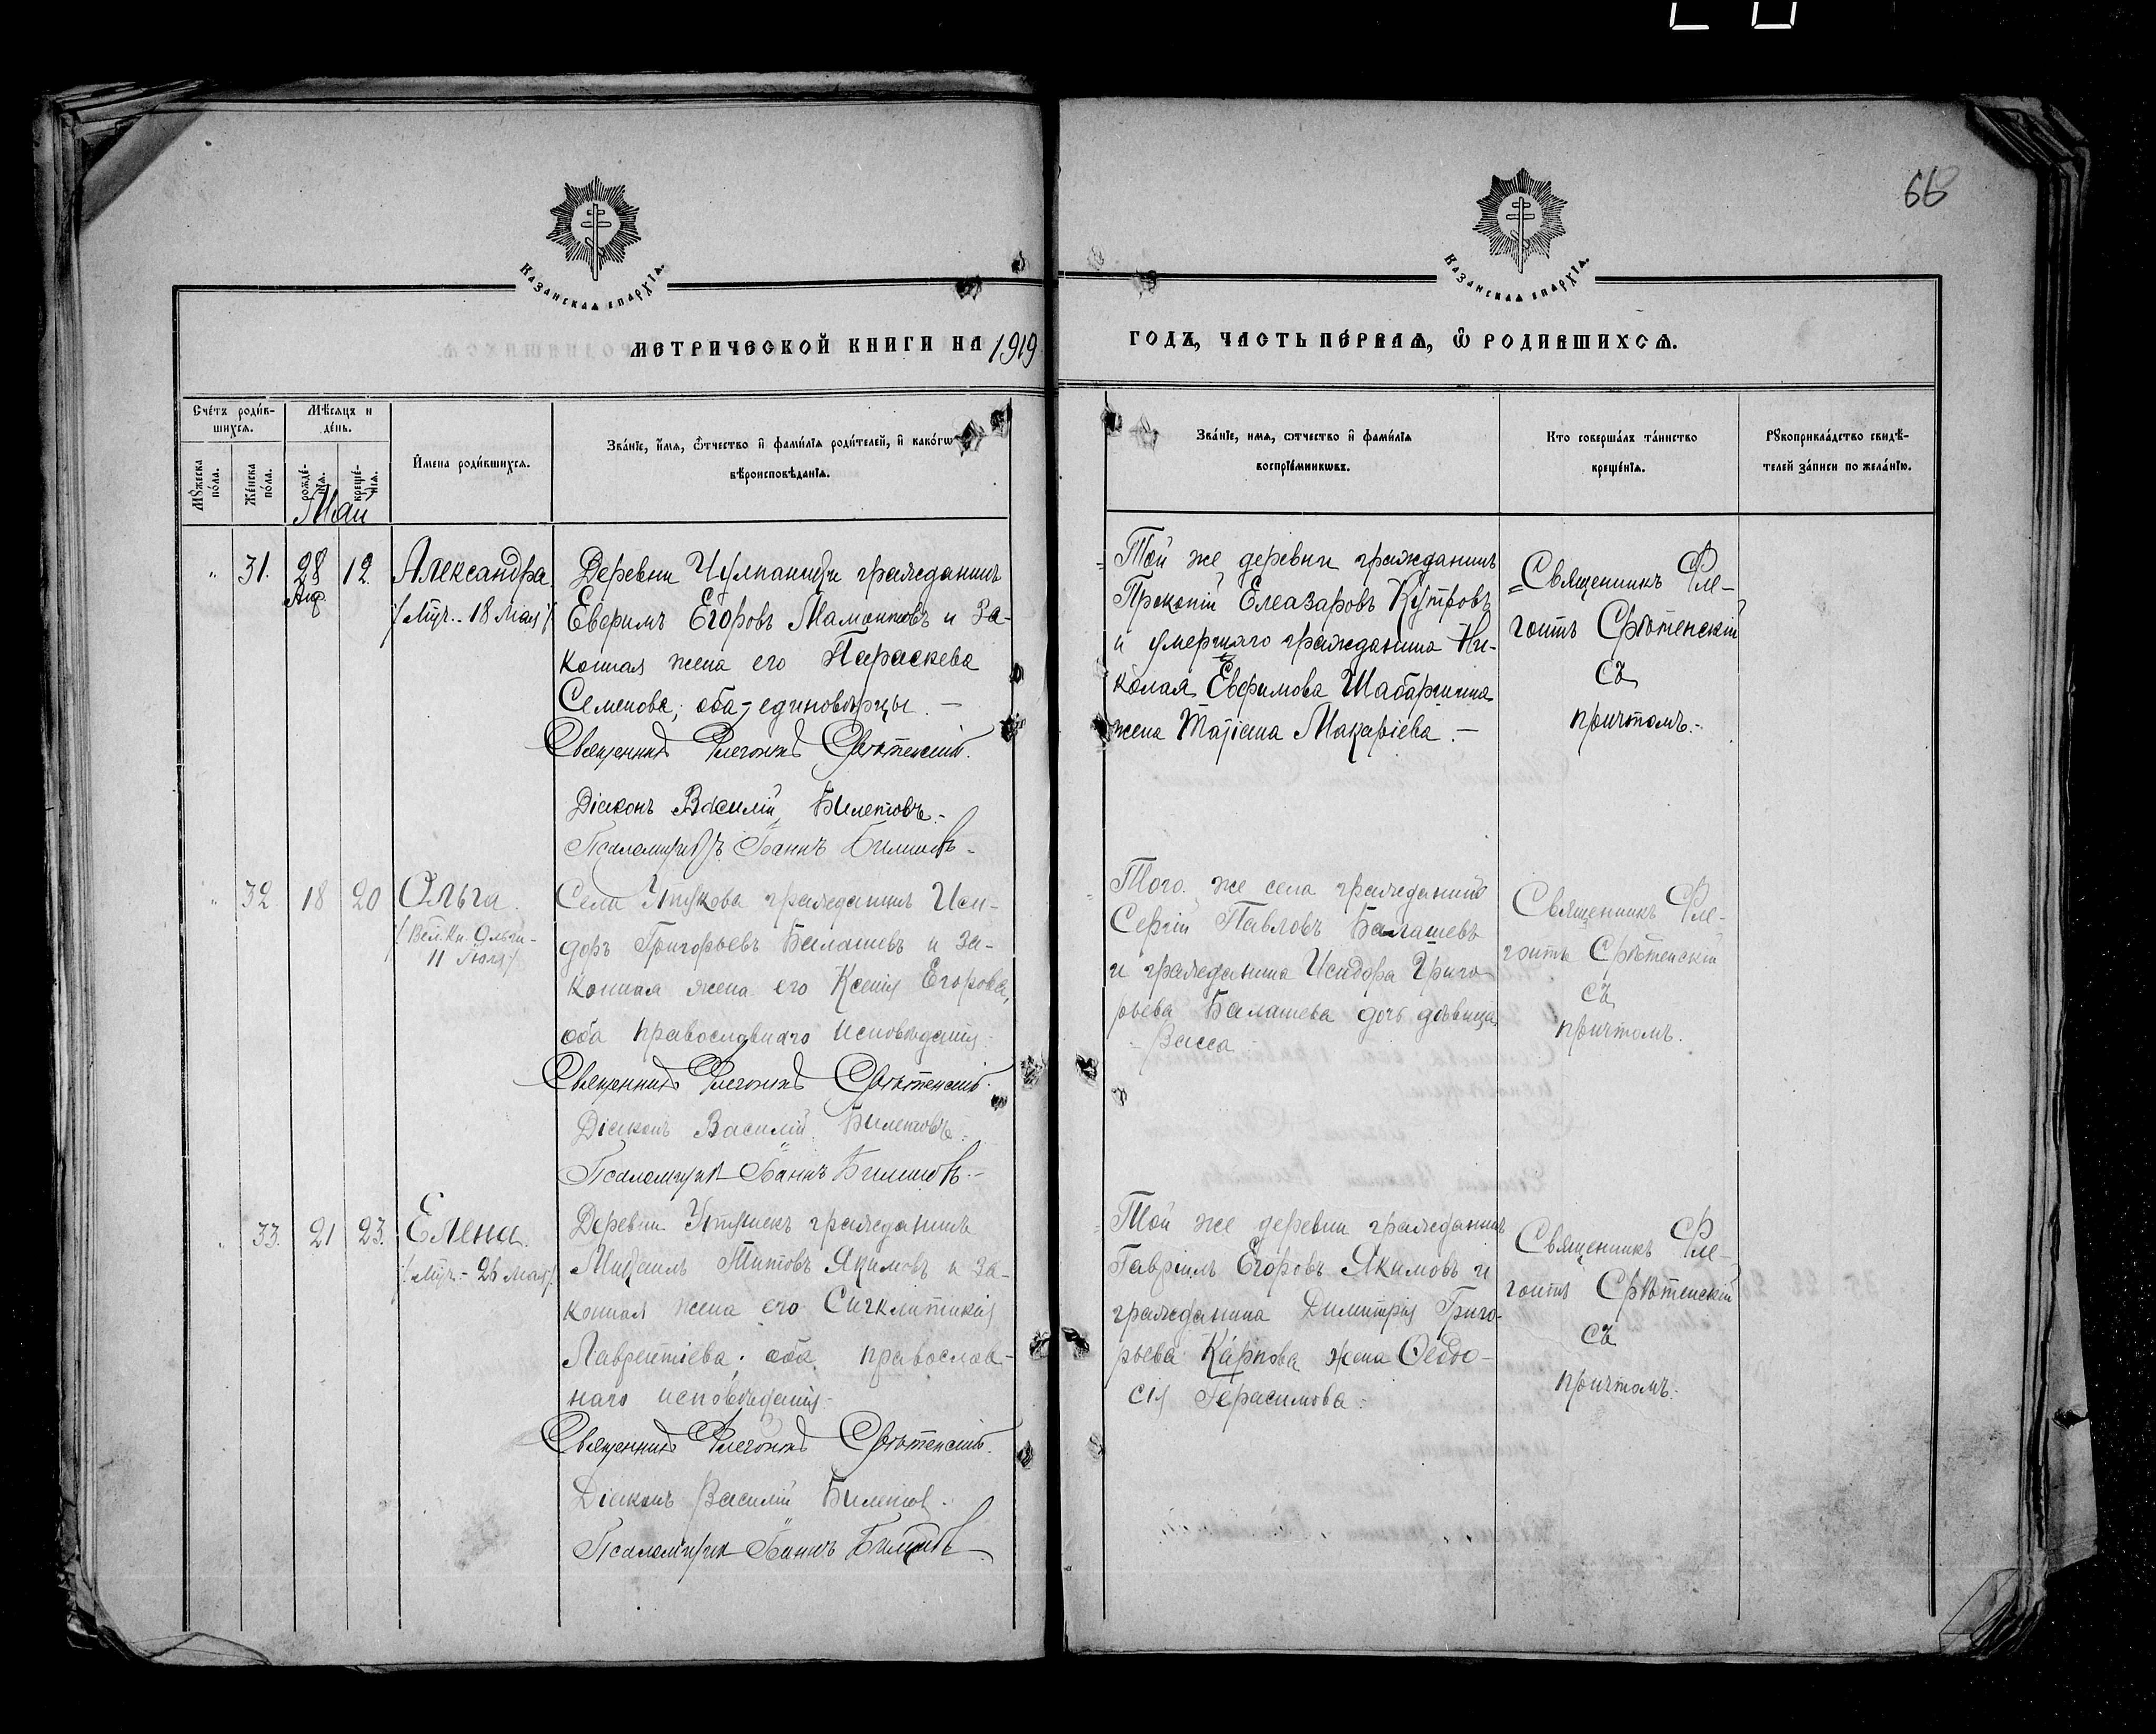 66
Казанская епархїа.
Казанская епархїа.
МЕТРИЧЕСКОЙ КНИГИ НА 1919
ГОДЪ, ЧАСТЬ ПЕ́РВАЯ, Ѡ РОДИВШИХСЯ.
Сче́тъ роди́в-
шихся.
Мѣ́сяцъ и
де́нь.
Мꙋ́жеска
по́ла.
Же́нска
по́ла.
рожде́-
нїѧ.
креще́-
нїѧ.
И҆мена роди́вшихся.
Зва́нїе, и҆́мя, ѻ҆́тчество и҆ фами́лїя роди́телей, и҆ како́гѡ
вѣроисповѣ́данїя.
Зва́нїе, имя, ѻтчество и҆ фами́лїя
воспрїе́мникѡвъ.
Кто соверша́лъ та́инство
креще́нїя.
Рꙋкоприкла́дство свидѣ́-
телей за́писи по жела́нїю.
Май
" 31. 28 12. Александра
Апр.
/Муч.- 18 мая/
Деревни гражданинъ
Евфимъ Егоровъ Мамонтовъ и за-
конная жена его Параскева
Семенова; оба-единовѣрцы. —
Священникъ Флегонтъ Срѣтенскій.
Дiаконъ Василій Билетовъ.-
Псаломщикъ Іоаннъ
Той же деревни гражданинъ
Прокопій Елеазаровъ Кутровъ
и умершаго гражданина Ни-
колая Евфимова
жена Татіана Макаріева. —
Священникъ Фле-
гонтъ Срѣтенскій
съ
причтомъ.-
" 32 18 20 Ольга.
/Вел. Кн. Ольги-
11 Іюля/
Села гражданинъ Иси-
доръ Григорьевъ Балашевъ и за-
конная жена его Ксенія Егорова,
оба православнаго исповѣданія.
Священникъ Флегонтъ Срѣтенскій.
Дiаконъ Василій Билетовъ.
Псаломщикъ Іоаннъ
Того же села гражданинъ
Сергій Павловъ Балашевъ
и гражданина Исидора Григо-
рьева Балашева дочь дѣвица
Васса
Священникъ Фле-
гонтъ Срѣтенскій
съ
причтомъ.
" 33. 21 23. Елена.
/Муч.- 26 мая/
Деревни гражданинъ
Михаилъ Титовъ Якимовъ и за-
конная жена его Сигклитикія
Лаврентіева; оба православ-
наго исповѣданія.-
Священникъ Флегонтъ Срѣтенскій.
Дiаконъ Василій Билетовъ.
Псаломщикъ Іоаннъ
Той же деревни гражданинъ
Гавріилъ Егоровъ Якимовъ и
гражданина Димитрія Григо-
рьева Карпова жена Ѳеодо-
сія Герасимова.
Священникъ Фле-
гонтъ Срѣтенскій
съ
причтомъ.